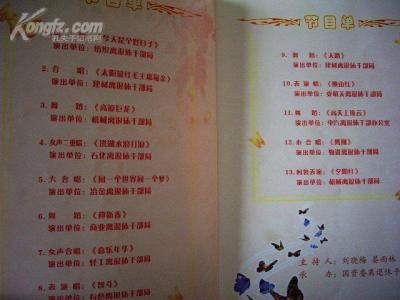 Kongfz.com
孔夫子旧书网
节目单
《今天是个好日子》
演出单位：纺织离退休干部局
2. 合 唱：《太阳最红毛主席最亲》
演出单位：建材离退休干部局
3. 舞 蹈：《高原巨龙》
演出单位：机械离退休干部局
4. 女声二重唱：《洪湖水浪打浪》
演出单位：石化离退休干部局
5. 大合唱：《同一个世界同一个梦》
演出单位：冶金离退休干部局
6. 舞 蹈：《迎新春》
演出单位：商业离退休干部局
7. 女声合唱：《音乐年华》
演出单位：轻工离退休干部局
8. 表演唱：《智斗》
演出单位：石化离退休干部局
节目单
9. 舞 蹈：《天路》
演出单位：建材离退休干部局
10. 表演唱：《映山红》
演出单位：委机关离退休干部局
11. 舞 蹈：《高天上流云》
演出单位：中汽离退休干部办公室
12. 小合唱：
演出单位：物资离退休干部局
13. 时装表演：《夕阳红》
演出单位：机械离退休干部局
主 持 人：刘晓梅 晏雨林
承 办：国资委离退休干